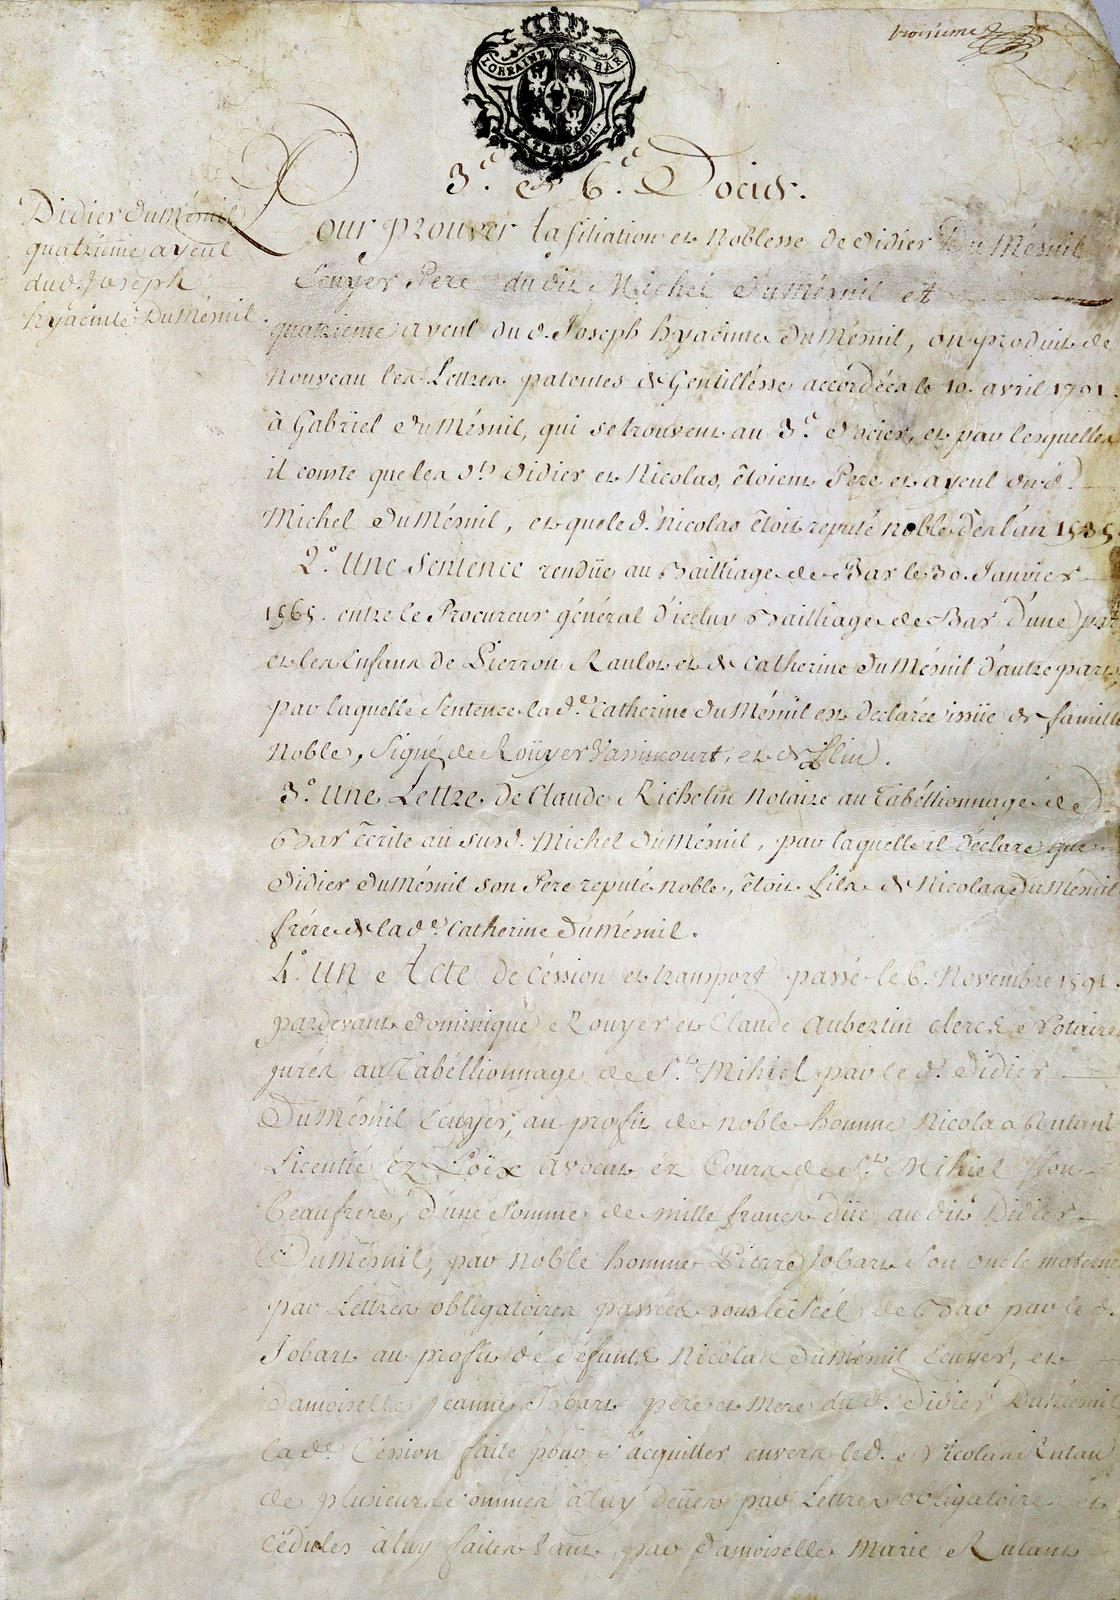 troisieme
LORRAINE ET BAR
EXTRAORDI.
3.e et 6.e Docier.
Didier DuMésnil
quatriéme ayeul
du d. Joseph
hyacinte DuMésnil
Pour prouver la filiation et Noblesse de Didier DuMésnil
Ecuyer Pere du dit Michel DuMésnil et
quatriéme ayeul du d. Joseph hyacinte DuMésnil, on produit de
Nouveau les Lettres patentes de Gentillésse accordées le 10. avril 1701.
à Gabriel DuMésnil, qui se trouvent au 3.e Docier, et par lesquelles
il conste que les d.ts Didier et Nicolas, étoient Pere et ayeul du d.
Michel DuMésnil, et que le d. Nicolas étoit reputé noble dès l'an 1535.
2.o Une Sentence rendüe au Bailliage de Bar le 30. Janvier
1565. entre le Procureur général d'iceluy Bailliage de Bar d'une part
et les Enfans de Pierron Raulot et de Catherine DuMésnil d'autre part,
par laquelle Sentence la d.e Catherine DuMésnil est declarée issüe de famille
Noble, Signé de Roüyer Vassincourt, et de Flin.
3.o Une Lettre de Claude Richelin Notaire au Tabéllionnage de
Bar écrite au susd. Michel DuMésnil, par laquelle il déclare que
Didier DuMésnil son Pere reputé noble, étoit fils de Nicolas DuMésnil
frére de la d.e Catherine DuMésnil.
4.o Un Acte de Céssion et transport passé le 6. Novembre 1591.
pardevant Dominique Rouyer et Claude Aubertin clercs Notaires
jurés au Tabéllionnage de S.t Mihiel par le d. Didier
DuMésnil Ecuyer, au profit de noble homme Nicolas Rutant
Licentié ez Loix avocat ez Cours de S.t Mihiel son
Beaufrere, d'une Somme de mille francs düe au dit Didier
DuMésnil, par Noble homme Pierre Jobart son oncle maternel
par Lettres obligatoires passées sous le Scél de Bar par le d.
Jobart au profit de défunts Nicolas DuMésnil Ecuyer, et
Damoiselle Jeanne Jobart pere et Mere du d. Didier DuMésnil
la d.e Céssion faite pour s'acquitter envers le d. Nicolas Rutant
de plusieurs Sommes à luy deües par Lettres obligatoires et
Cédules à luy faites tant par Damoiselle Marie Rutant